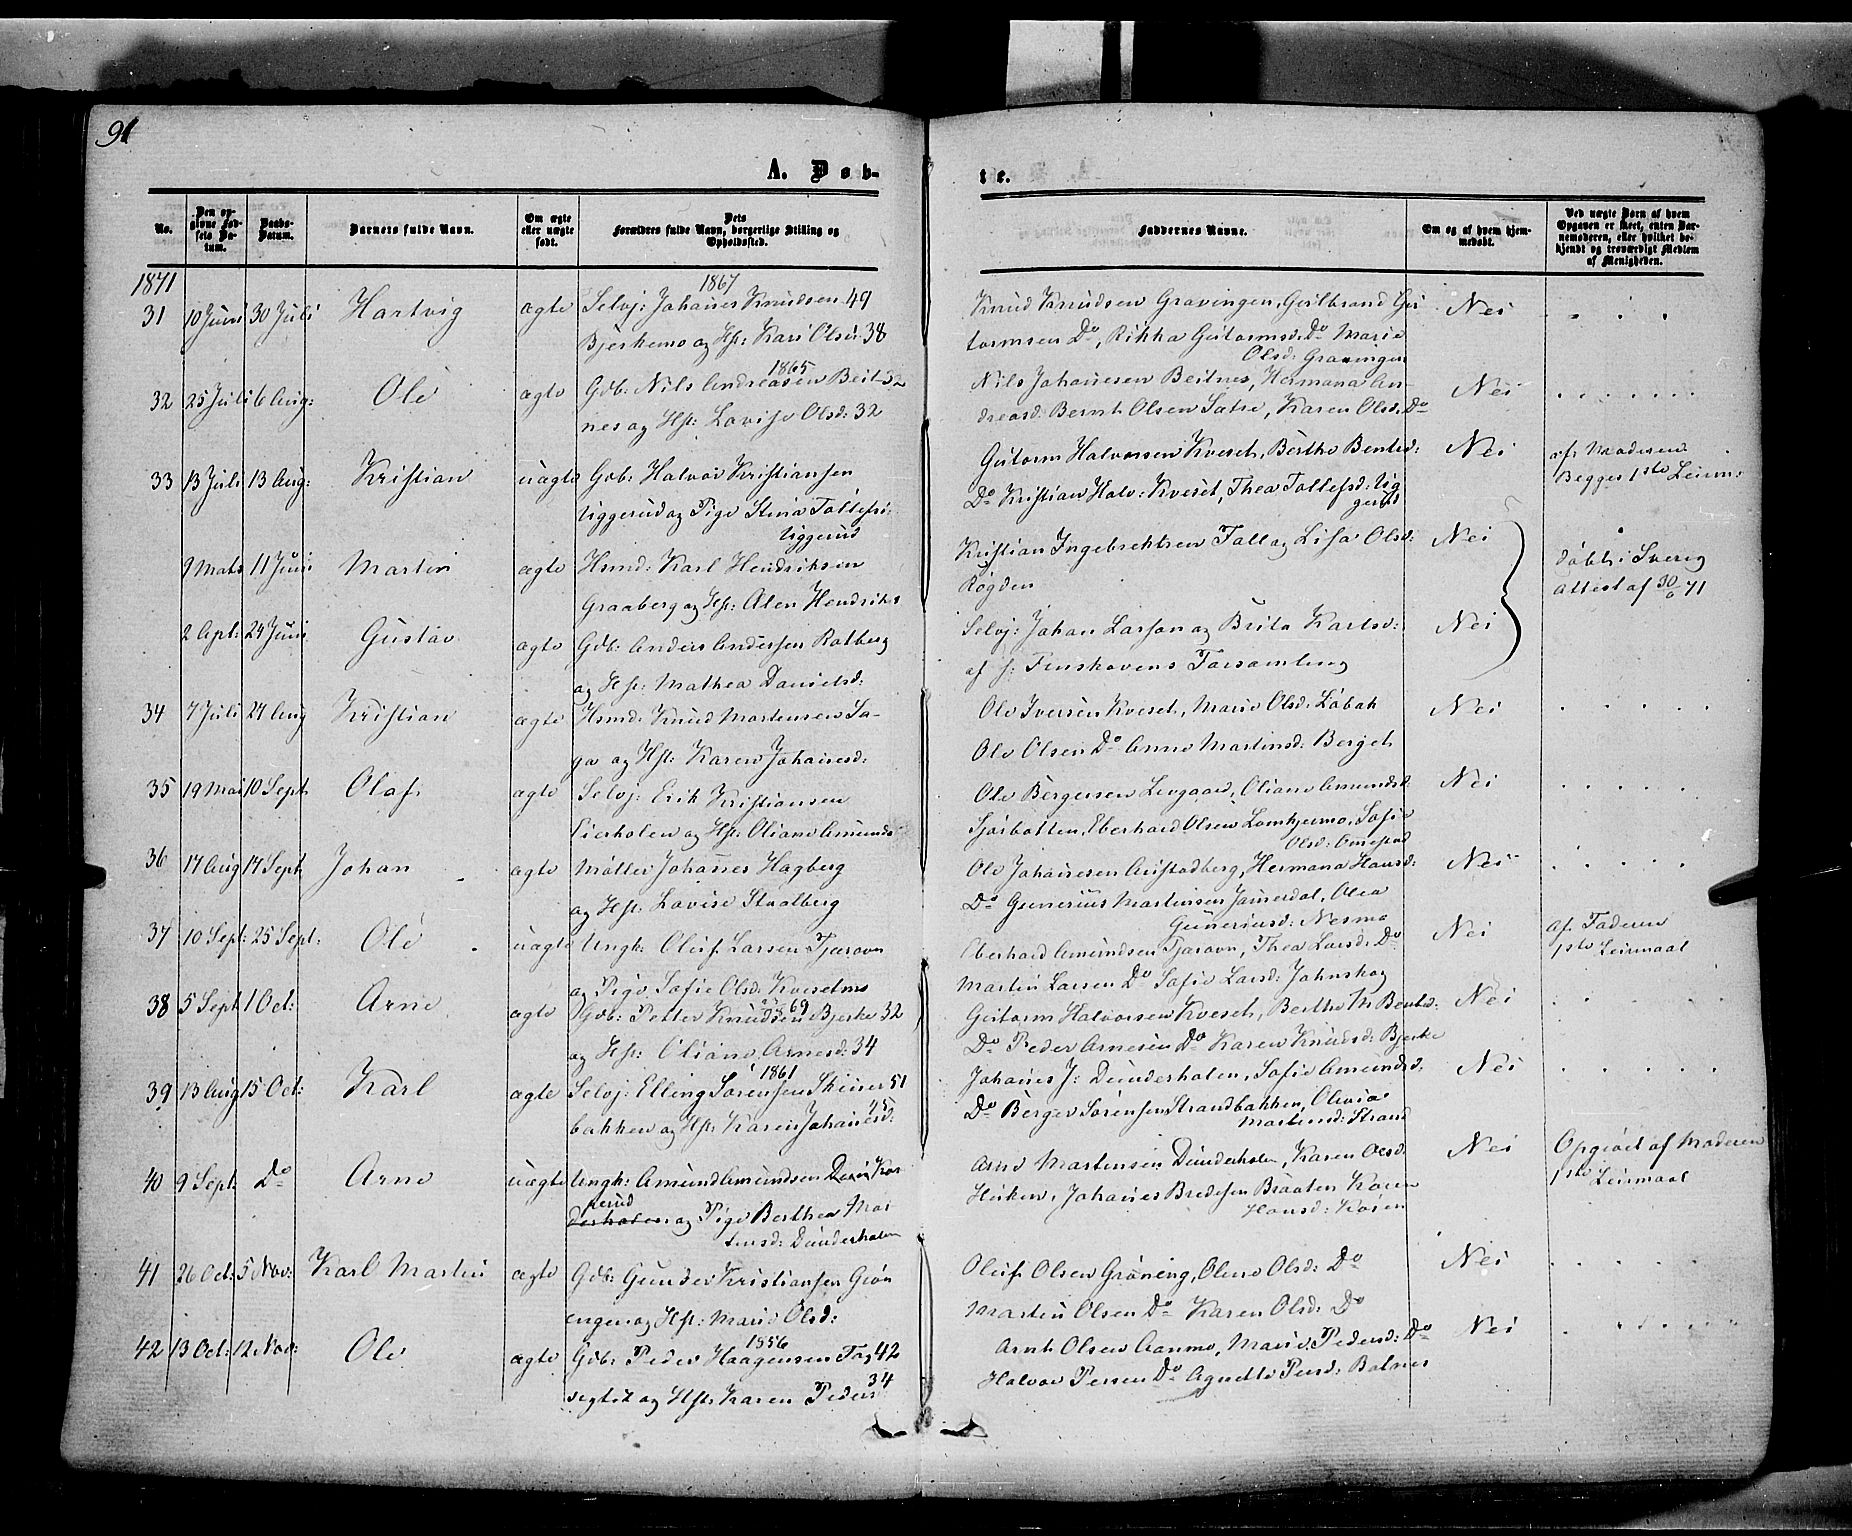 91
A. Døb-
te.
No.
Den opgivne Fødsels Datum.
Daabs-Datum.
Barnets fulde Navn.
Om ægte eller uægte født.
Dets Forældres fulde Navn, borgerlige Stilling og Opholdssted.
Faddernes Navne.
Om og af hvem hjemmedøbt.
Ved uægte Børn af hvem Opgaven er skeet, enten Barnemoderen, eller hvilket bekjendt og troværdigt Medlem af Menigheden.
1871
31 10 Juni 30 Juli Hartvig ægte Selvj: Johannes Knudsen 49
1867
Bjerkemo og Hst: Kari Olsd: 38
Knud Knudsen Gravingen, Gulbrand Gu
tormsen Do, Rikka Gutormsd: Do Marie
Olsd: Gravingen
Nei
32 25 Juli 6 Aug: Ole ægte Gdb: Nils Andreasen Beit 32
1865
nes og Hst: Lovise Olsd: 32
Nils Johannesen Beitnes, Hermana An-
dreasd: Bernt Olsen Sætre, Karen Olsd: Do
Nei
33 13 Juli 13 Aug: Kristian uægte Gdb: Halvor Kristiansen
Uggerud og Pige Stina Tollefsd:
Uggerud
Gutorm Halvorsen Kveset, Berthe Bentsd:
Do Kristian Halv: Kveset, Thea Tollefsd: Ug
gerud
Nei
af Moderen
Begges 1ste Leierm:
9 Mats 11 Juni Martin ægte Hsmd: Karl Hendriksen
Graaberg og Hst: Alen Hendriks
Kristian Ingebrektsen Fall og Lisa Olsd:
Røgden
Nei
døbt i Sverig
Attest af 30/6 71
2 Apr: 24 Juni Gustav ægte Gdb: Anders Andersen Rotberg
og Hst: Mathea Danielsd:
Selvj: Johan Larson og Brita Karlsd:
af f: Finskovens Forsamling
Nei
34 7 Juli 27 Aug Kristian ægte Hsmd: Knud Mortensen Sa-
ga og Hst: Karen Johannesd:
Ole Iversen Kveset, Marie Olsd: Løbak
Ole Olsen Do Anne Martinsd: Berget
Nei
35 19 Mai 10 Sept Olaf ægte Selvj: Erik Kristiansen
Eierholen og Hst: Oliane Amunds
Ole Bergersen Levgaard, Oliane Amundsd:
Sjøbotten, Eberhard Olsen Lomkjermo, Sofie
Olsd: Omestad
Nei
36 17 Aug 17 Sept Johan ægte Møller Johannes Hagberg
og Hst: Lovise Staalberg
Ole Johannesen Austadberg, Hermana Hansd:
Do Gunerius Martinsen Jammerdal, Olea
Guneriusd: Nesmo
Nei
37 10 Sept: 25 Sept: Ole uægte Ungk: Oluf Larsen Tjaravn
og Pige Sofie Olsd: Kvesetmo
Eberhard Amundsen Tjaravn, Thea Larsd: Do
Martin Larsen Do Sofie Larsd: Johnskog
Nei
af Faderen
1ste Leiermaal
38 5 Sept 1 Oct: Arne ægte Gdb: Petter Knudsen Bjerke 32
69
og Hst: Oliane Arnesd: 34
Gutorm Halvorsen Kveset, Berthe M Bentsd:
Do Peder Arnesen Do Karen Knudsd: Bjerke
Nei
39 13 Aug 15 Oct: Karl ægte Selvj: Elling Sørensen Skinner 51
1861
bakken og Hst: Karen Johannesd: 45
Johannes J: Dunderholen, Sofie Amundsd.
Do Berger Sørensen Strandbakken, Olivia
Martinsd: Strand
Nei
40 9 Sept: Do Arne uægte Ungk: Amund Amundsen Dun Kar
nerud
derholen og Pige Berthea Mor
tensd: Dunderholen
Arne Martensen Dunderholen, Karen Olsd:
Hviken, Johannes Bredesen Braaten Karen
Hansd: Køien
Nei
Opgivet af Moderen
1ste Leiermaal
41 26 Oct: 5 Nov: Karl Martin ægte Gdb: Gunder Kristiansen Grøn
engen og Hst: Marie Olsd:
Oluf Olsen Grøneng, Oline Olsd: Do
Martin Olsen Do Karen Olsd: Do
Nei
42 13 Oct: 12 Nov: Ole ægte Gdb: Peder Haagensen Tag 42
1856
segtet og Hst: Karen Peders 34
Arnt Olsen Aanmo, Marie Pedersd: Do
Halvor Persen Do Agnette Persd: Botner
Nei